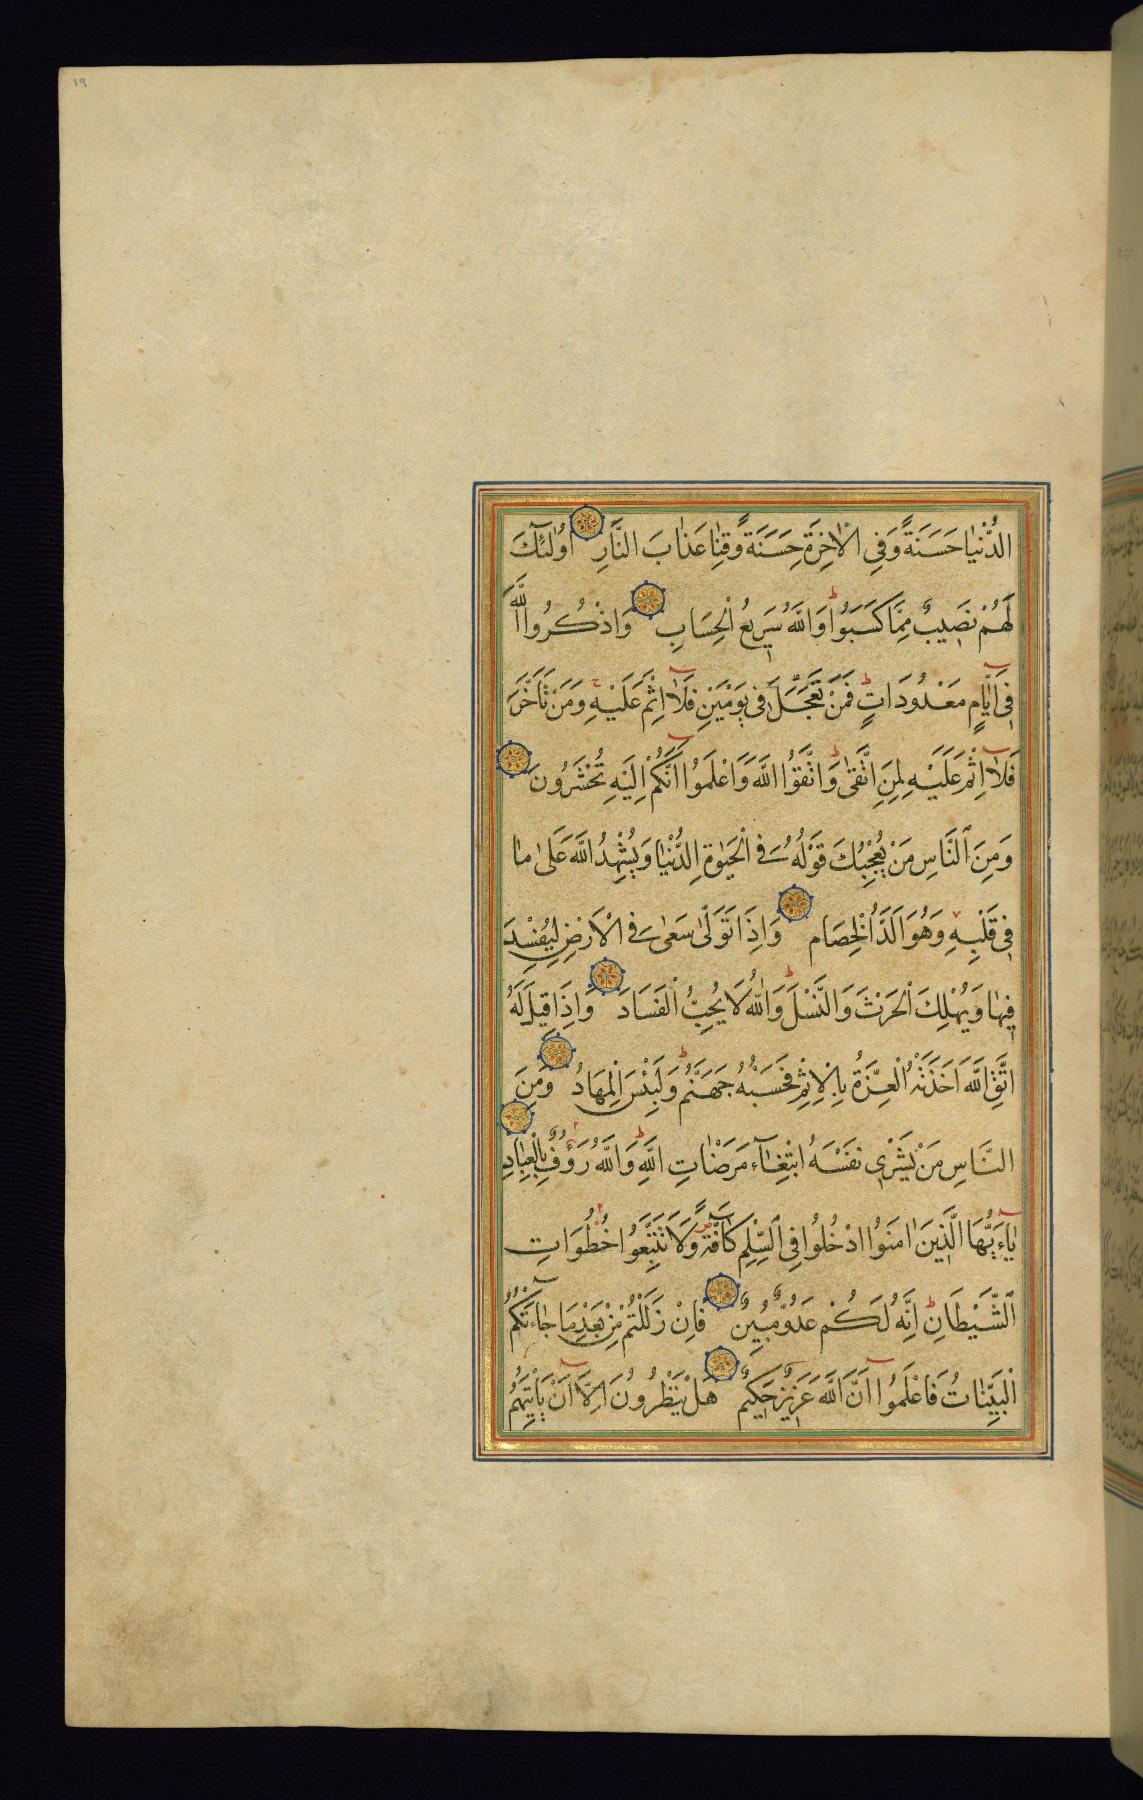 ١٩
الدُّنْيَا حَسَنَةً وَفِي الْاٰخِرَةِ حَسَنَةً وَقِنَا عَذَابَ النَّارِ اُولٰٓئِكَ
لَهُمْ نَصِيبٌ مِمَّا كَسَبُوا ط وَاللّٰهُ سَرِيعُ الْحِسَابِ وَاذْكُرُوا اللّٰهَ
فِي اَيَّامٍ مَعْدُودَاتٍ ط فَمَنْ تَعَجَّلَ فِي يَوْمَيْنِ فَلَا اِثْمَ عَلَيْهِ ج وَمَنْ تَاَخَّرَ
فَلَا اِثْمَ عَلَيْهِ لِمَنِ اتَّقٰى ط وَاتَّقُوا اللّٰهَ وَاعْلَمُوا اَنَّكُمْ اِلَيْهِ تُحْشَرُونَ
وَمِنَ النَّاسِ مَنْ يُعْجِبُكَ قَوْلُهُ فِي الْحَيٰوةِ الدُّنْيَا وَيُشْهِدُ اللّٰهَ عَلٰى مَا
فِي قَلْبِهِ وَهُوَ اَلَدُّ الْخِصَامِ وَاِذَا تَوَلّٰى سَعٰى فِي الْاَرْضِ لِيُفْسِدَ
فِيهَا وَيُهْلِكَ الْحَرْثَ وَالنَّسْلَ ط وَاللّٰهُ لَا يُحِبُّ الْفَسَادَ وَاِذَا قِيلَ لَهُ
اتَّقِ اللّٰهَ اَخَذَتْهُ الْعِزَّةُ بِالْاِثْمِ فَحَسْبُهُ جَهَنَّمُ ط وَلَبِئْسَ الْمِهَادُ وَمِنَ
النَّاسِ مَنْ يَشْرِي نَفْسَهُ ابْتِغَآءَ مَرْضَاتِ اللّٰهِ ط وَاللّٰهُ رَؤُفٌ بِالْعِبَادِ
يَآءَيُّهَا الَّذِينَ اٰمَنُوا ادْخُلُوا فِي السِّلْمِ كَآفَّةً ص وَلَا تَتَّبِعُوا خُطُوَاتِ
الشَّيْطَانِ ط اِنَّهُ لَكُمْ عَدُوٌّ مُبِينٌ فَاِنْ زَلَلْتُمْ مِنْ بَعْدِ مَا جَآءَتْكُمُ
الْبَيِّنَاتُ فَاعْلَمُوا اَنَّ اللّٰهَ عَزِيزٌ حَكِيمٌ هَلْ يَنْظُرُونَ اِلَّا اَنْ يَاْتِيَهُمُ